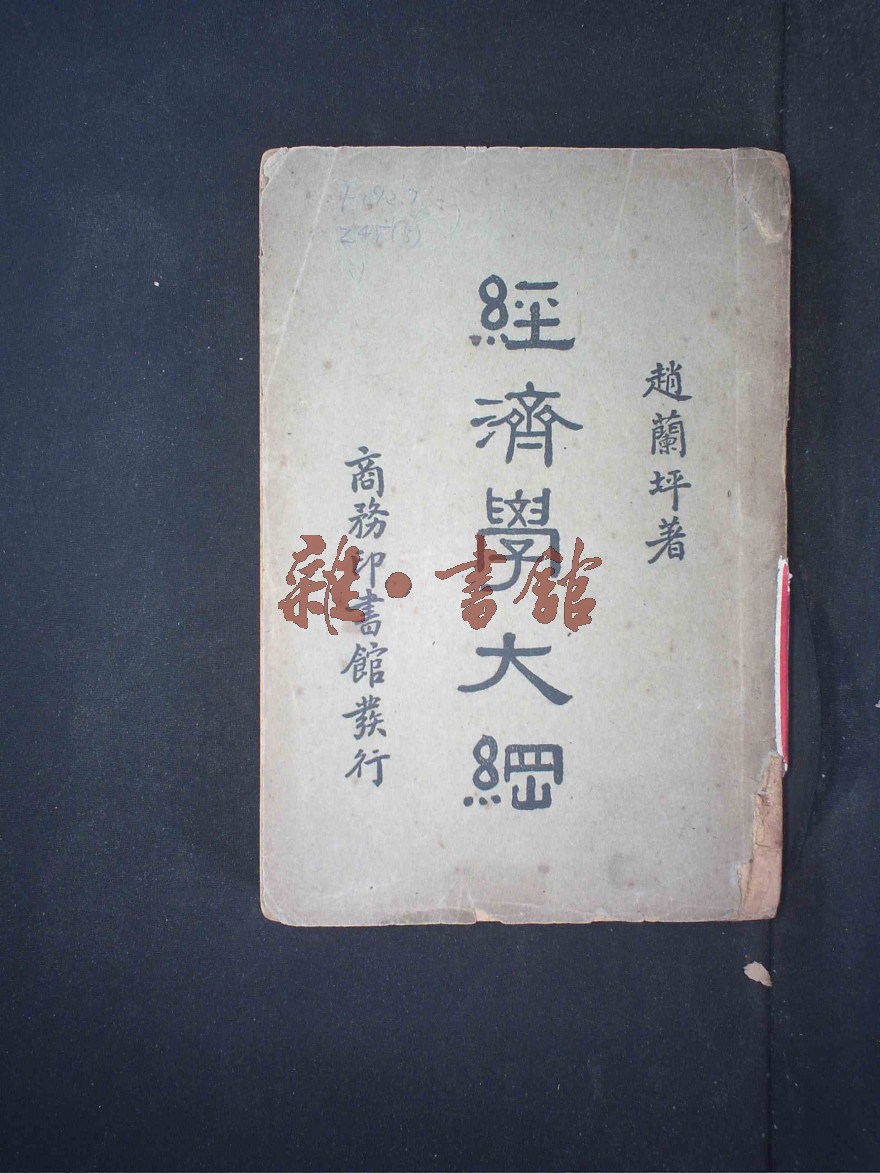 趙蘭坪著
經濟學大綱
商務印書館發行
雜·書館